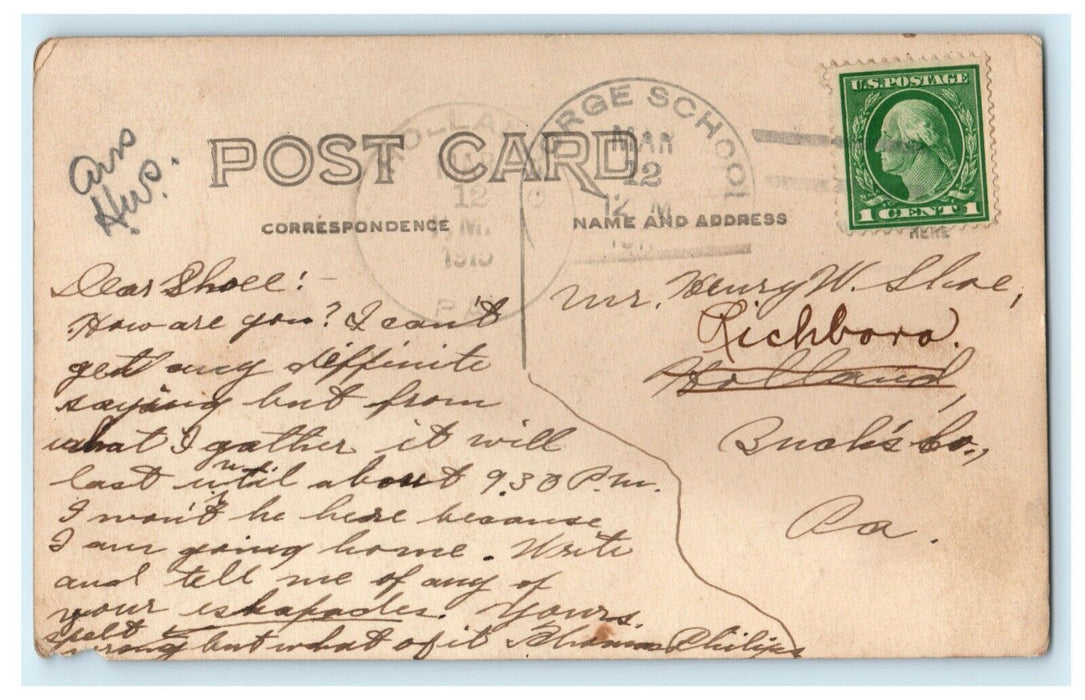 POST CARD
CORRESPONDENCE
NAME AND ADDRESS
HOLLAND
12
M.
1915
PA
ORGE SCHOOL
MAR
12
12 M
U.S. POSTAGE
1 CENT 1
HERE
Ans
Dear Shoee:-
How are you? I can't
get any diffinite
saying but from
what I gather it will
last until about 9.30 P.m.
I won't be here because
I am going home. Write
and tell me of any of
your eskapades. Yours,
spelt wrong but what of it Philips
Mr. Henry W. Shoe,
Richboro.
Holland,
Buck's Co.,
Pa.